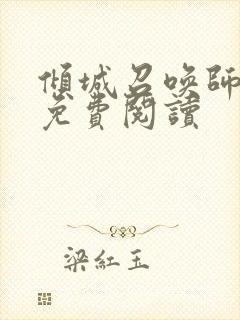 傾城召喚師
免費閱讀
梁紅玉